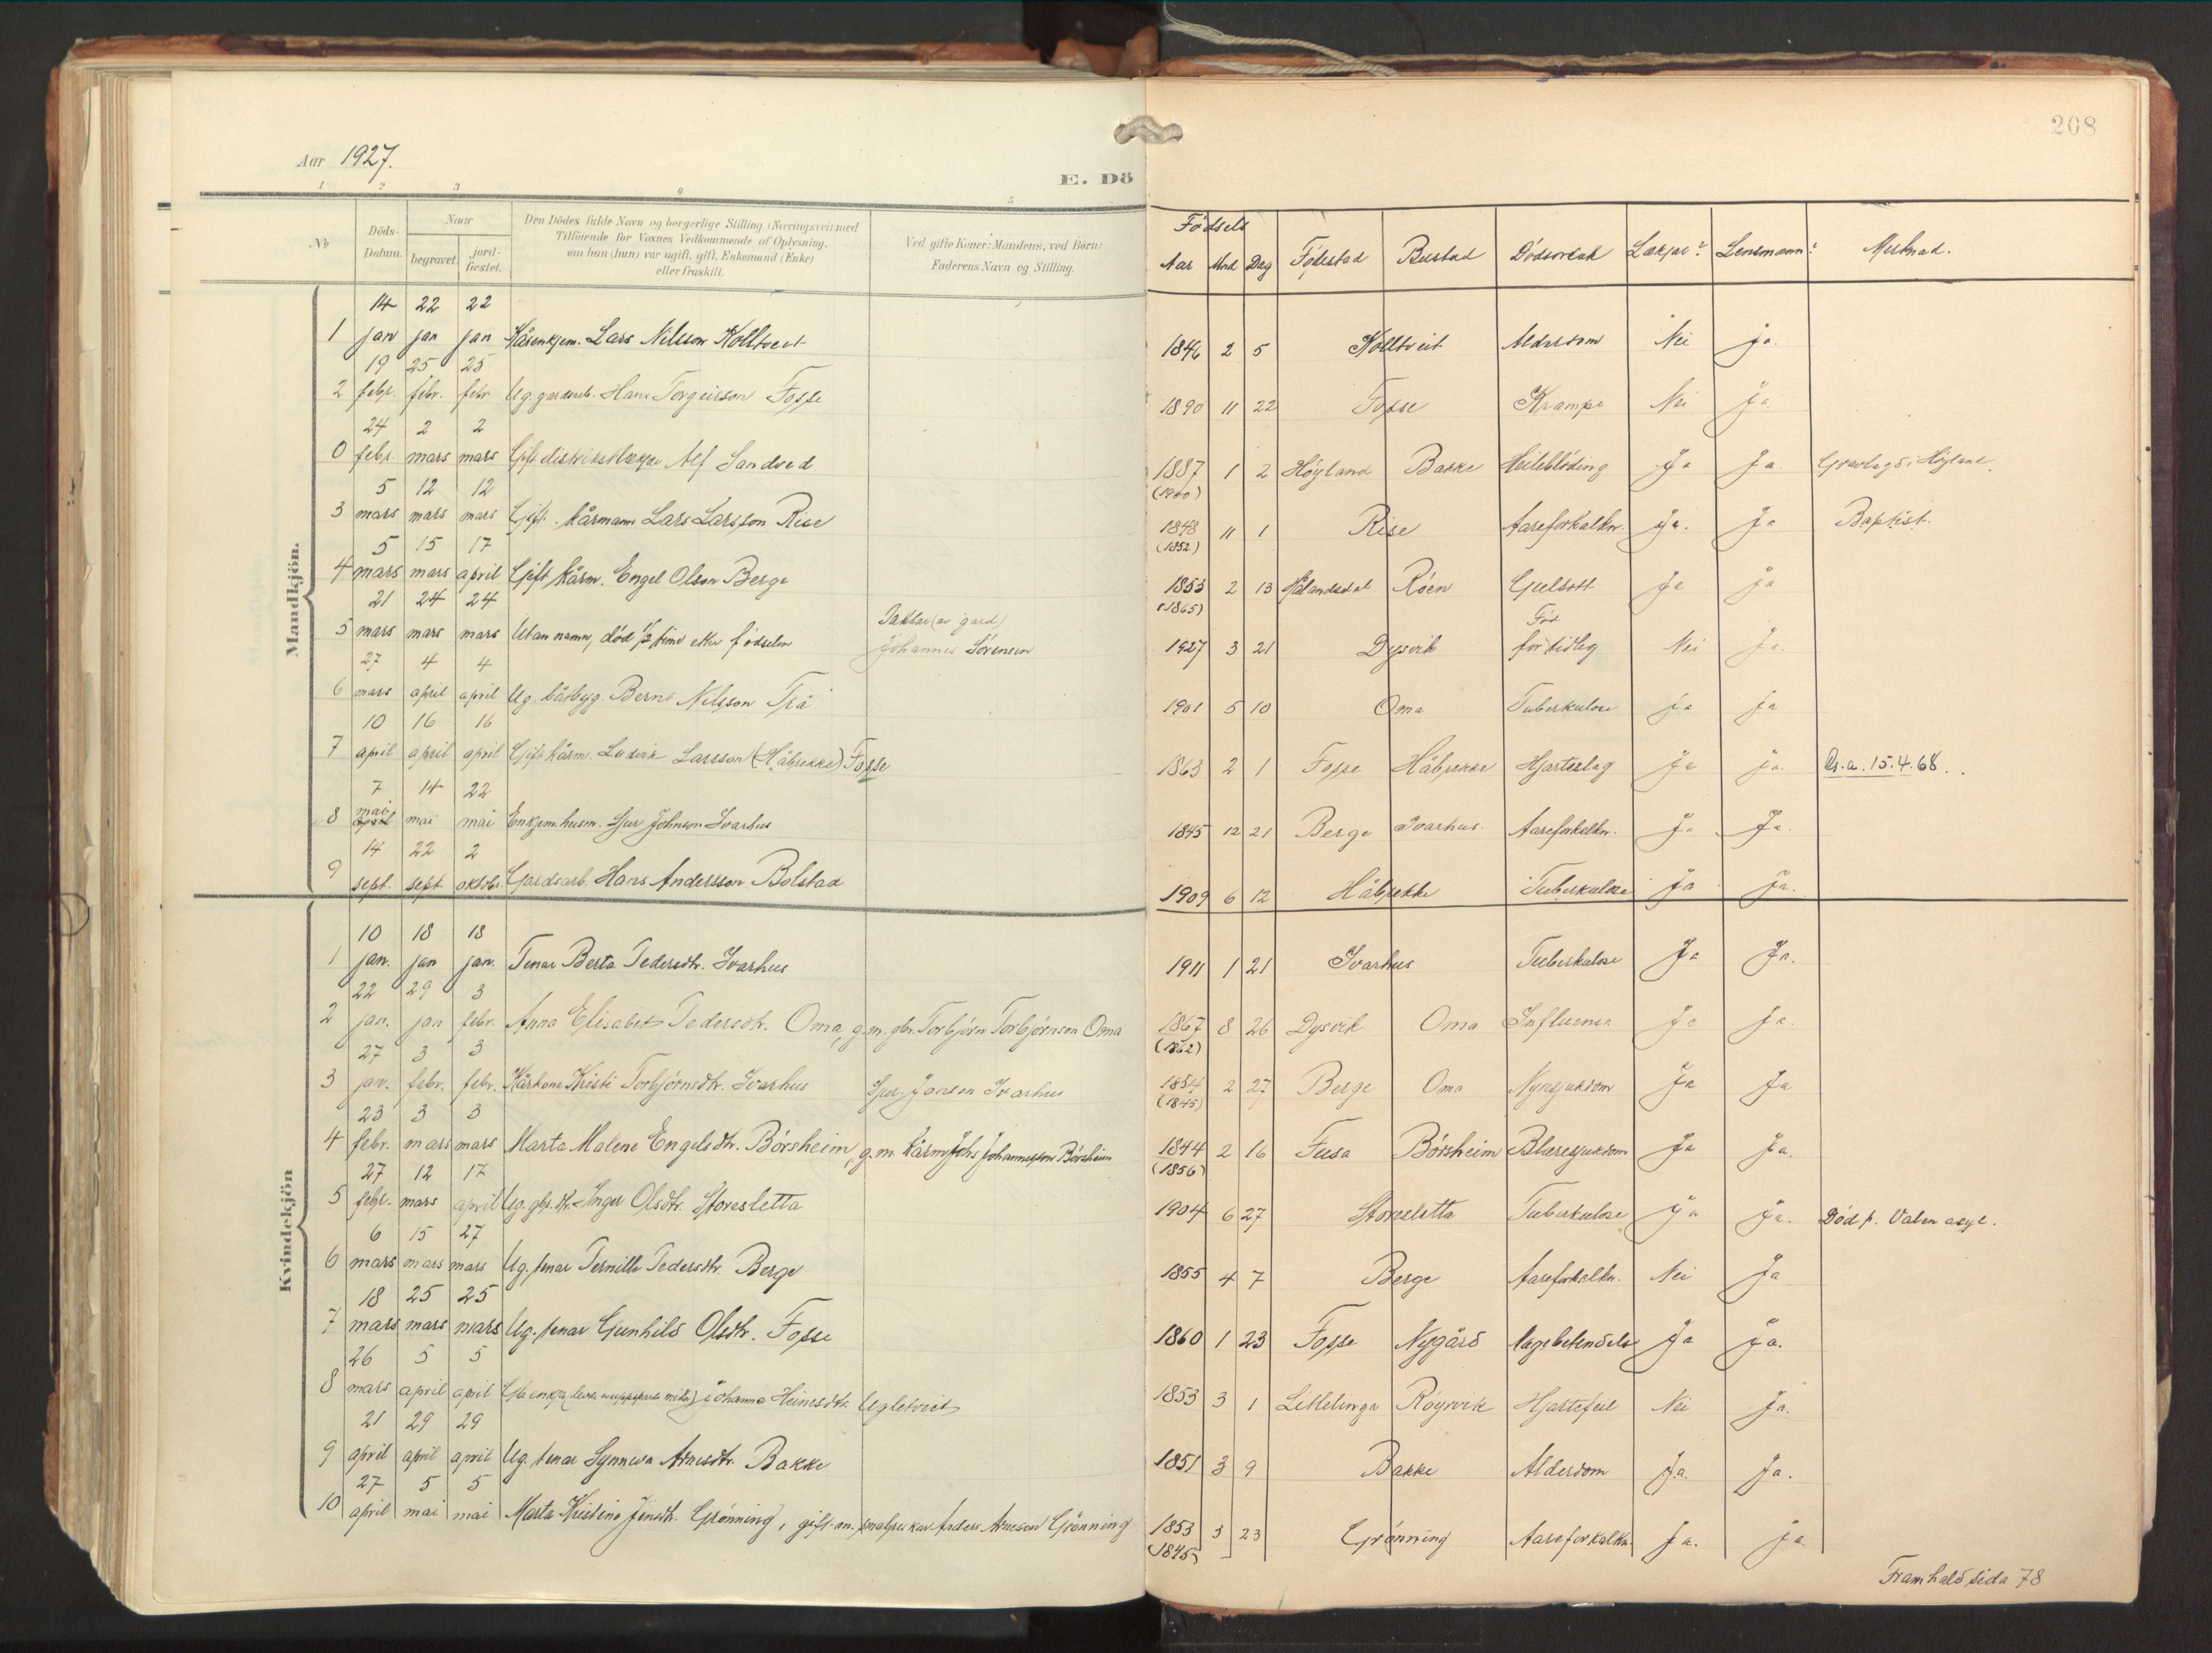 208
Aar 1927.
E. Dö
1 2 3 4 5
Nr
Döds-Datum.
Naar
begravet.
jord-fæstet.
Den Dödes fulde Navn og borgerlige Stilling (Næringsvei) med
Tilföiende for Voxnes Vedkommende af Oplysning,
om han (hun) var ugift, gift, Enkemand (Enke)
eller fraskilt.
Ved gifte Koner: Mandens, ved Börn:
Faderens Navn og Stilling.
Fødsels
Aar Mnd Dag Fødestad Bustad Dødsorsak Lækjar? Lensmann? Merknad.
Mandkjön.
14 22 22
1 jan jan jan Kårenkjem. Lars Nilsson Kolltveit 1846 2 5 Kolltveit Alderdom Nei Ja.
19 25 25
2 febr. febr. febr Ug. gardsarb. Hans Torgeirson Fosse 1890 11 22 Fosse Krampe Nei Ja
24 2 2
0 febr. mars mars Gift distriktslækjar Alf Sandved 1887 1 2 Høyland Bakke Heilebløding Ja Ja. Gravlagd i Høyland.
5 12 12 (1900)
3 mars mars mars Gift. kårmann Lars Larsson Rise 1848 11 1 Rise Aareforkalkn. Ja. Ja Baptist.
5 15 17 (1852)
4 mars mars april Gift kårm. Engel Olson Berge 1853 2 13 Hålandsdal Røen Gulsott Ja Ja
21 24 24 (1865)
5 mars mars mars Utan namn, død 1/2 time etter fødselen Johannes Sørensen 1927 3 21 Dysvik Fød for tidleg Nei Ja.
27 4 4
6 mars april april Ug. båtbyg. Bernt Nilsson Trå 1901 5 10 Oma Tuberkulose Ja Ja
10 16 16
7 april april april Gift kårm. Ludvik Larsson (Håbrekke) Fosse 1863 2 1 Fosse Håbrekke Hjarteslag Ja Ja. Us.a. 15.4.68.
7 14 22
8 mai april mai mai Enkjem. husm. Sjur Johnson Ivarhus 1845 12 21 Berge Ivarhus. Aareforkalkn. Ja Ja.
14 22 2
9 sept. sept. oktbr. Gardsarb. Hans Andersson Bolstad 1909 6 12 Håbrekke Tuberkulose Ja Ja.
Kvindekjön
10 18 18
1 jan. jan jan. Tenar Berta Pedersdtr. Ivarhus 1911 1 21 Ivarhus Tuberkulose Ja Ja.
22 29 3
2 jan. jan febr. Anna Elisabet Pedersdtr. Oma, g.m. gbr. Torbjørn Torbjørnson Oma 1867 8 26 Dysvik Oma Influensa Ja Ja.
27 3 3 (1862)
3 jan. febr. febr. Kårkona Kristi Torbjørnsdtr. Ivarhus Sjur Jonson Ivarhus 1854 2 27 Berge Oma Nyresjukdom Ja Ja
23 3 3 (1845)
4 febr. mars mars Marta Malene Engelsdtr. Børsheim, g.m. kårm. Johs Johannesson Børsheim 1844 2 16 Fusa Børsheim Blæresjukdom Ja Ja.
27 12 17 (1856)
5 febr. mars april Ug. gbr. dt. Inger Olsdtr. Storesletta 1904 6 27 Storesletta Tuberkulose Ja Ja. Død p. Valen asyl.
6 15 27
6 mars mars mars Ug. tenar Pernille Pedersdtr. Berge 1855 4 7 Berge Aareforkalkn. Nei Ja
18 25 25
7 mars mars mars Ug. tenar Gunhild Olsdtr. Fosse 1860 1 23 Fosse Nygård Ja Ja.
26 5 5
8 mars april april Johanna Heinesdtr. Ugletveit 1853 3 1 Litlelinga Røyrvik Hjartefeil Nei Ja.
21 29 29
9 april april april Ug. tenar Synneva Arnesdtr. Bakke 1851 3 9 Bakke Alderdom Ja. Ja.
27 5 5
10 april mai mai Marta Kristina Jensdtr. Grønning, gift m. Anders Arneson Grønning 1853 3 23 Grønning Aareforkalkn. Ja. Ja.
(1845)
Framhald sida 78